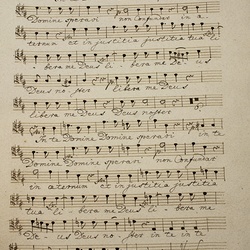 Domine speravi non Confundar in æ
ternum et in justitia justitia tua li
bera me Deus li bera me De us
Deus noster libera me Deus
libera me Deus Deus noster
In te Domine Domine speravi in te
Domine Domine speravi non Confundar
in æternum et in justitia justitia
tua li bera me Deus li bera me
De us Deus noster in te in te